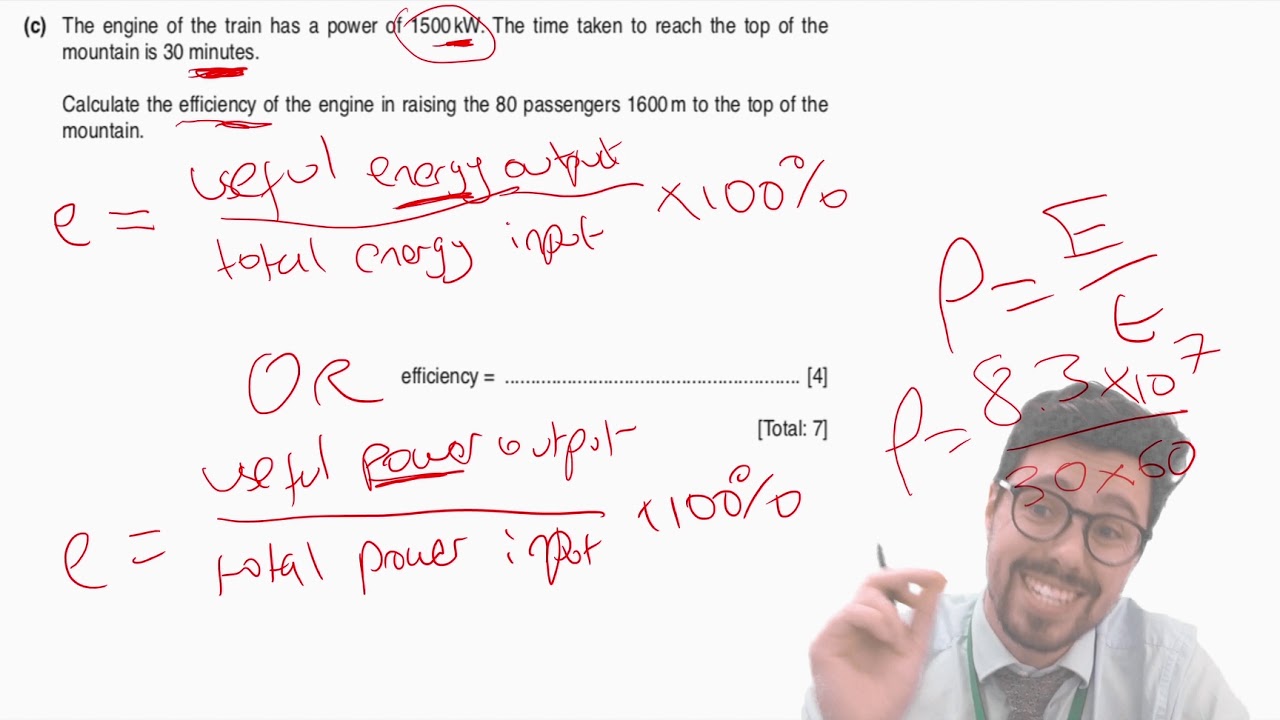 (c) The engine of the train has a power of 1500 kW. The time taken to reach the top of the
mountain is 30 minutes.
Calculate the efficiency of the engine in raising the 80 passengers 1600 m to the top of the
mountain.
e = useful energy output / total energy input × 100%
P = E / t
OR
efficiency = ........................................................ [4]
[Total: 7]
P = 8.3 × 10⁷ / 30 × 60
e = useful power output / total power input × 100%